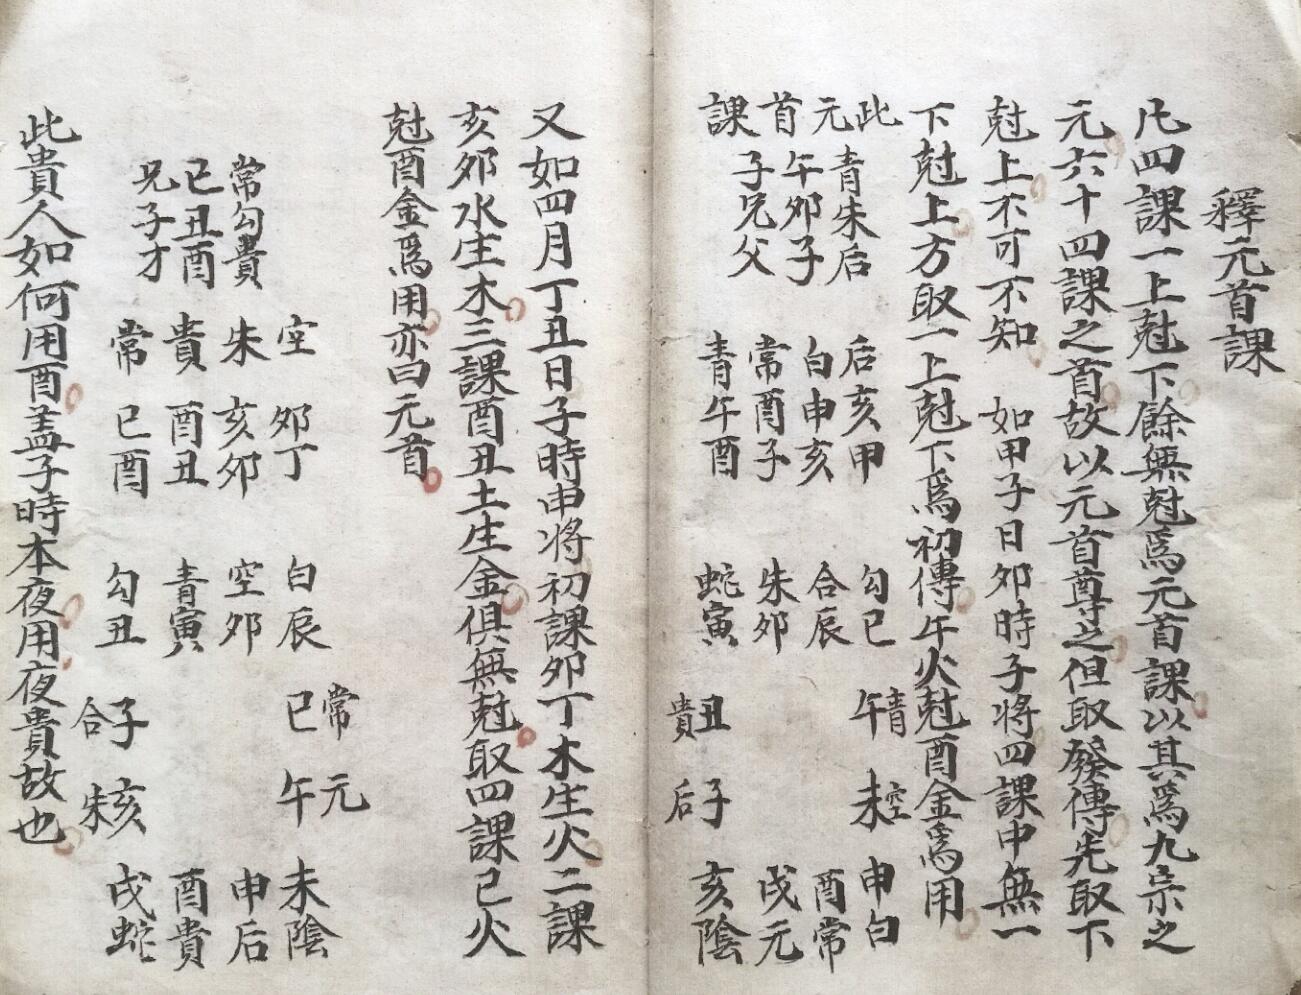 釋元首課
凡四課一上尅下餘無尅爲元首課以其爲九宗之
元六十四課之首故以元首尊之但取發傳先取下
尅上不可不知 如甲子日卯時子將四課中無一
下尅上方取一上尅下爲初傳午火尅酉金爲用
此 青朱后 后亥甲 勾巳 午青 未空 申白
元 午卯子 白申亥 合辰 酉常
首 子兄父 常酉子 朱卯 戌元
課 青午酉 蛇寅 丑貴 子后 亥陰
又如四月丁丑日子時申将初課卯丁木生火二課
亥卯水生木三課酉丑土生金俱無尅取四課巳火
尅酉金爲用亦曰元首
空卯丁 白辰 巳常 午元 未陰
常勾貴 朱亥卯 空卯 申后
巳丑酉 貴酉丑 青寅 酉貴
兄子才 常巳酉 勾丑 子合 亥朱 戌蛇
此貴人如何用酉盖子時本夜用夜貴故也